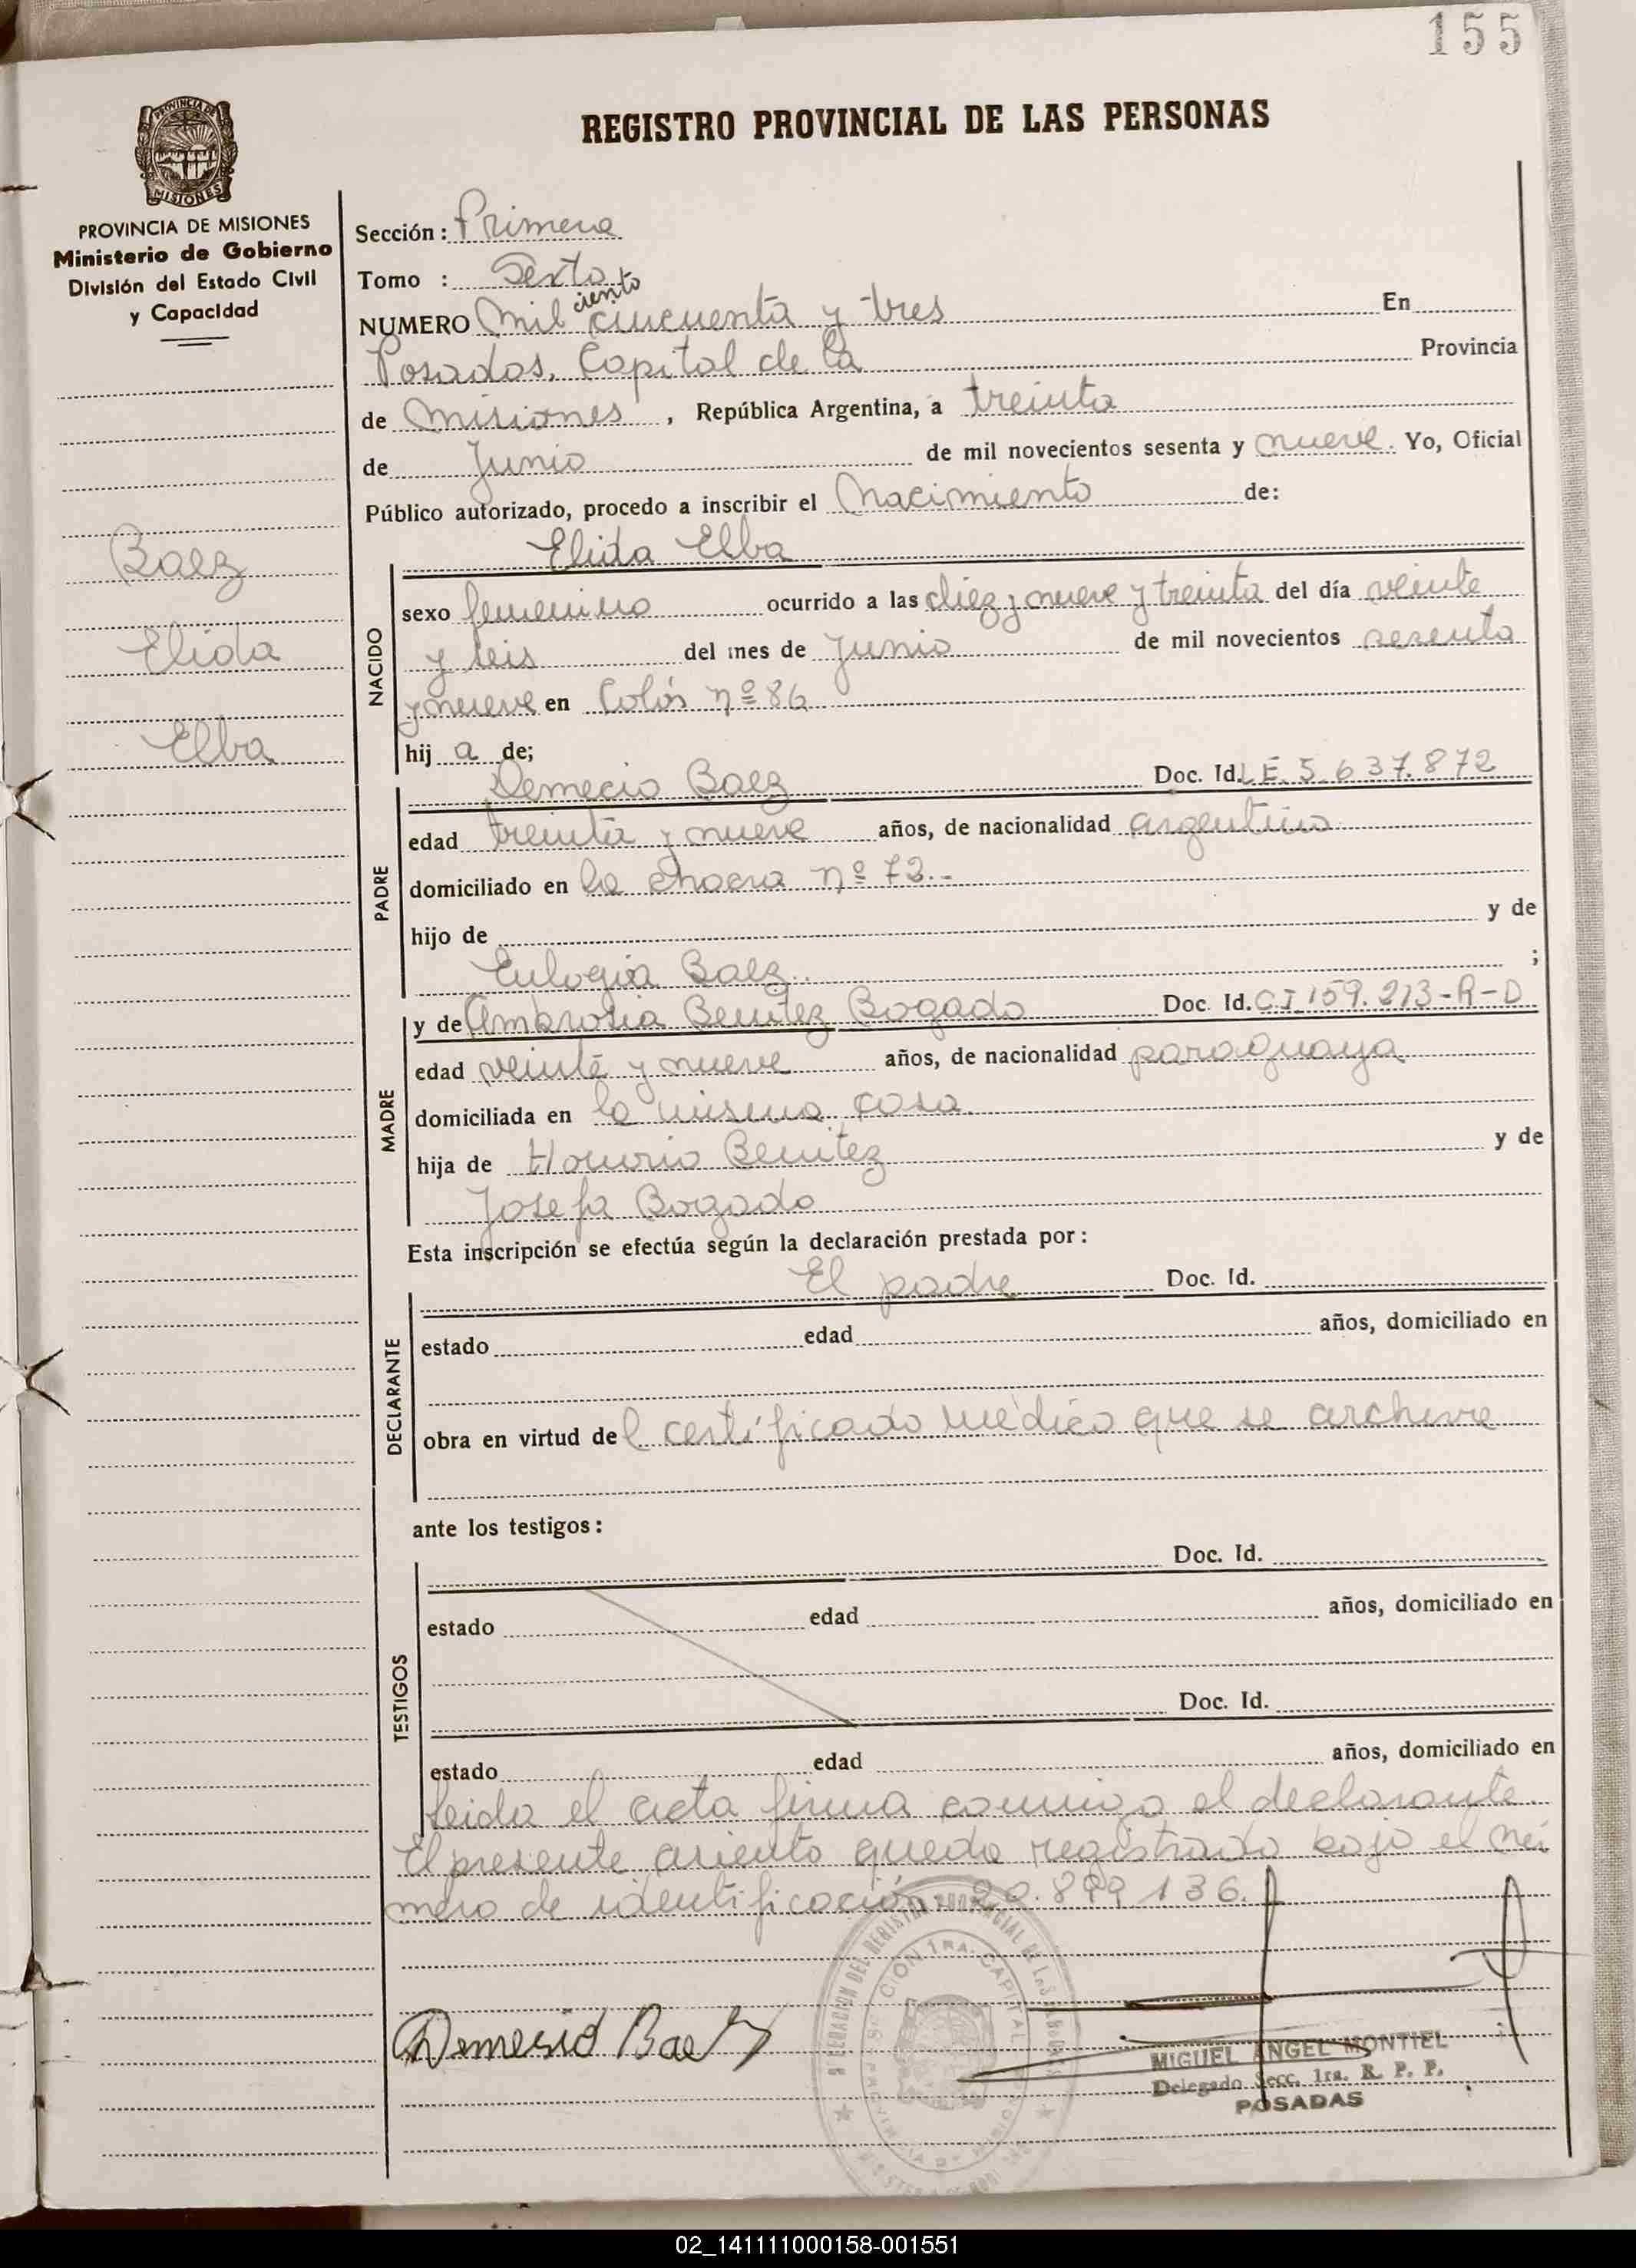 155
REGISTRO PROVINCIAL DE LAS PERSONAS
PROVINCIA DE MISIONES
Ministerio de Gobierno
División del Estado Civil
y Capacidad
Baez
Elida
Elba
Sección: Primera
Tomo : Sexto
ciento
NUMERO Mil cincuenta y tres En
Posadas, Capital de la Provincia
de Misiones, República Argentina, a treinta
de Junio de mil novecientos sesenta y nueve. Yo, Oficial
Público autorizado, procedo a inscribir el Nacimiento de:
Elida Elba
NACIDO
sexo femenino ocurrido a las diez y nueve y treinta del día veinte
y seis del mes de Junio de mil novecientos sesenta
y nueve en Colón nº 86
hij a de;
PADRE
Demecio Baez Doc. Id. L E. 5.637.872
edad treinta y nueve años, de nacionalidad argentino
domiciliado en la chacra nº 72.-
hijo de y de
Eulogia Baez. ;
MADRE
y de Ambrosia Benitez Bogado Doc. Id. C I 159.213-R-D
edad veinte y nueve años, de nacionalidad paraguaya
domiciliada en la misma casa
hija de Honorio Benitez y de
Josefa Bogado
Esta inscripción se efectúa según la declaración prestada por:
DECLARANTE
El padre Doc. Id.
estado edad años, domiciliado en
obra en virtud del certificado médico que se archiva
ante los testigos:
TESTIGOS
Doc. Id.
estado edad años, domiciliado en
Doc. Id.
estado edad años, domiciliado en
Leida el acta firma conmigo el declarante.
El presente asiento queda registrado bajo el nú
mero de identificación: 20.899.136.
Demesio Baez
MIGUEL ANGEL MONTIEL
Delegado Secc. 1ra. R. P. P.
POSADAS
02_141111000158-001551